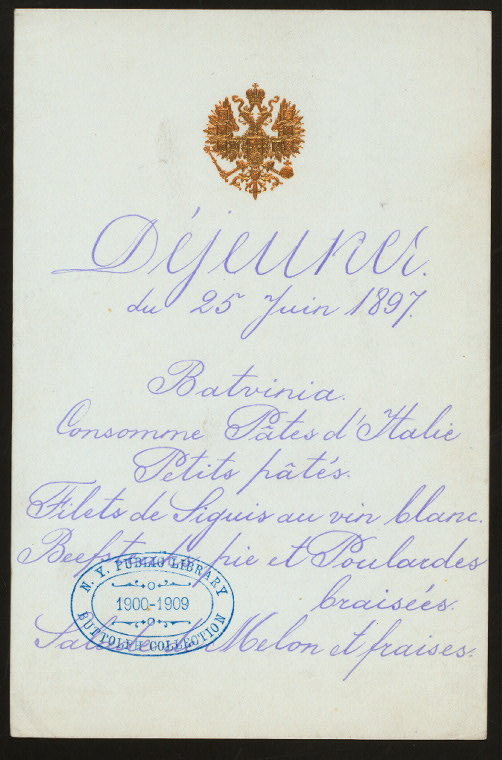 Déjeuner.
du 25 Juin 1897.
Batvinia.
Consomme Pâtes d'Italie
Petits pâtés.
Filets de Siguis au vin blanc.
Beefst pie et Poulardes
braisées.
Melon et fraises.
N. Y. PUBLIC LIBRARY
1900-1909
BUTTOLPH COLLECTION